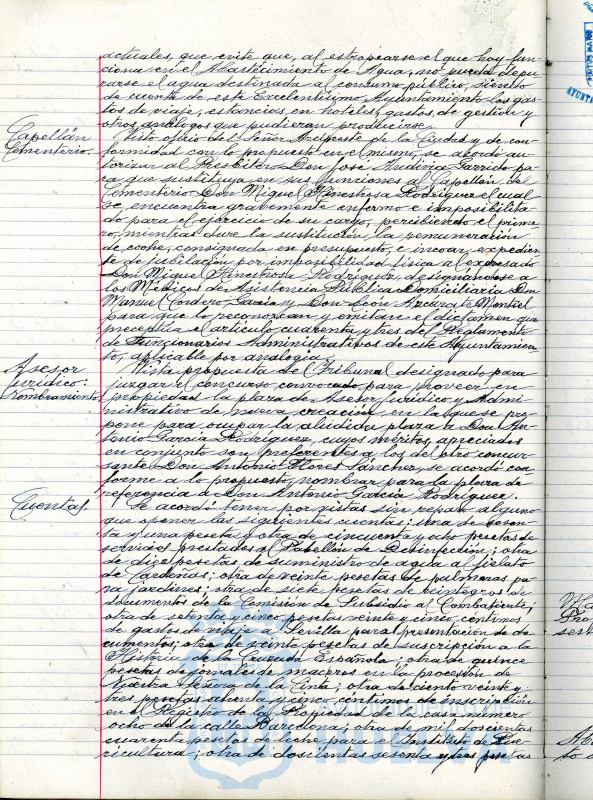 actuales, que evite que, al estropearse el que hoy fun-
ciona en el Abastecimiento de Agua, no pueda depu-
rarse el agua destinada al consumo público, siendo
de cuenta de este Excelentísimo Ayuntamiento los gas-
tos de viaje, estancias en hoteles, gastos de gestión y
otros análogos que pudieran producirse.
Capellán
Cementerio.
Visto oficio del Señor Arcipreste de la Ciudad y de con-
formidad con lo propuesto en el mismo, se acordó au-
torizar al Presbítero Don José Garrido pa-
ra que sustituya en sus funciones al Capellán del
Cementerio Don Miguel Hinestrosa Rodríguez el cual
se encuentra gravemente enfermo e imposibilita-
do para el ejercicio de su cargo, percibiendo el prime-
ro, mientras dure la sustitución la remuneración
de coope, consignada en presupuesto, e incoar expedien-
te de jubilación por imposibilidad física al expresado
Don Miguel Hinestrosa Rodríguez designándose a
los Médicos de Asistencia Pública Domiciliaria Don
Manuel Cordero García y Don León Azcárate Montiel
para que lo reconozcan y emitan el dictamen que
preceptúa el artículo cuarenta y tres del Reglamento
de Funcionarios Administrativos de este Ayuntamien-
to, aplicable por analogía.
Asesor
jurídico:
Nombramiento
Vista propuesta del Tribunal designado para
juzgar el concurso convocado para proveer en
propiedad la plaza de Asesor Jurídico y Admi-
nistrativo de nueva creación, en la que se pro-
pone para ocupar la aludida plaza a Don An-
tonio García Rodríguez, cuyos méritos, apreciados
en conjunto son preferentes a los del otro concur-
sante Don Antonio Flores Sánchez, se acordó con-
forme a lo propuesto, nombrar para la plaza de
referencia a Don Antonio García Rodríguez.
Cuentas.
Se acordó tener por vistas sin reparo alguno
que oponer las siguientes cuentas: una de sesen-
ta y una peseta y otra de cincuenta y ocho pesetas de
servicios prestados al Pabellón de Desinfección; otra
de diez pesetas de suministro de agua al fielato
de Cárdenas; otra de veinte pesetas de palmeras pa-
ra jardines; otra de siete pesetas de reintegros de
documentos de la Comisión de Subsidio al Combatiente;
otra de setenta y cinco pesetas veinte y cinco céntimos
de gastos de viaje a Sevilla para presentación de do-
cumentos; otra de veinte pesetas de suscripción a la
Historia de la Cruzada Española; otra de quince
pesetas de jornales de maceros en la procesión de
Nuestra Señora de la Cinta; otra de ciento veinte y
tres pesetas ochenta y cinco céntimos de inscripción
en el Registro de la Propiedad de la casa número
ocho de la calle Barcelona; otra de mil doscientas
cuarenta pesetas de leche para el Instituto de Pue-
ricultura; otra de doscientas sesenta y tres pesetas